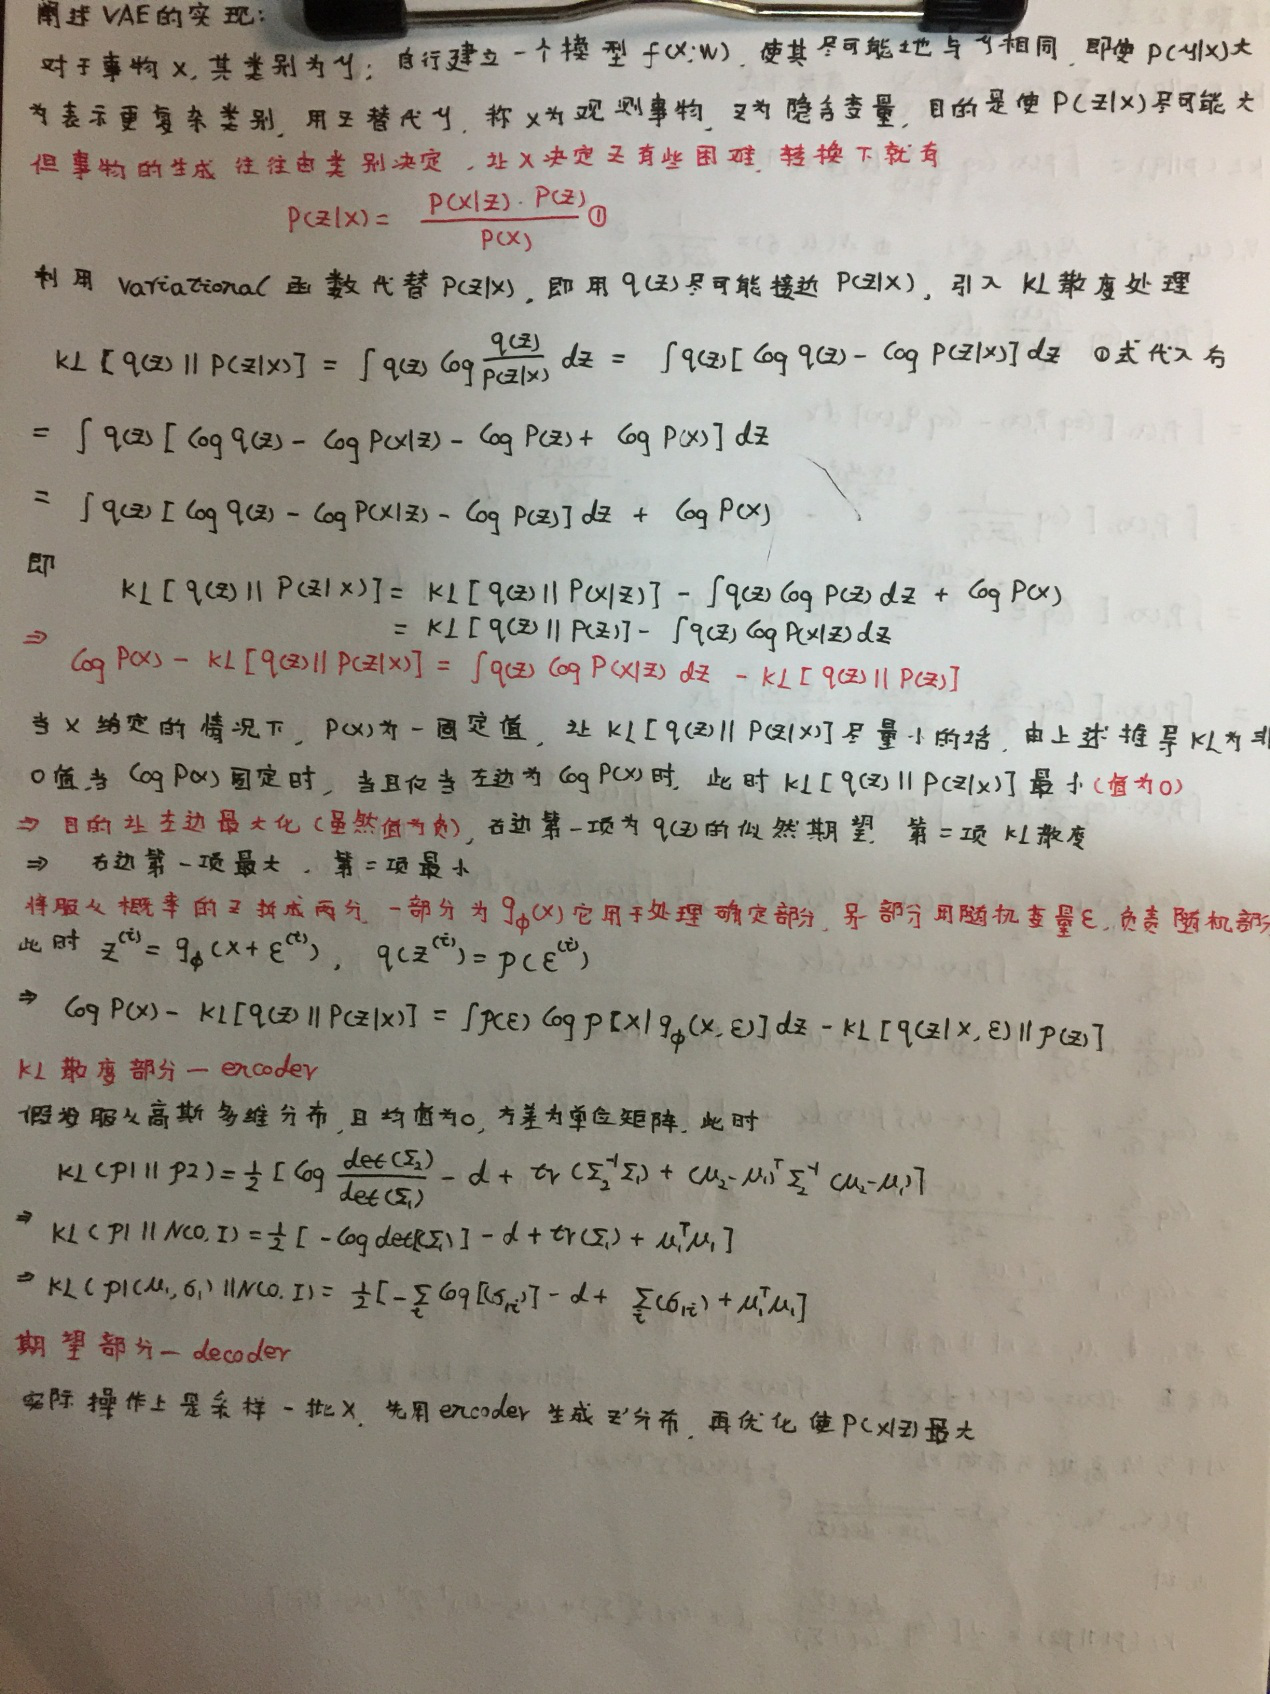 阐述VAE的实现:
对于事物X,其类别为y;自行建立一个模型f(x;w),使其尽可能地与y相同,即使P(y|x)大
为表示更复杂类别,用Z替代y,称X为观测事物,Z为隐含变量,目的是使P(Z|X)尽可能大
但事物的生成往往由类别决定,让X决定Z有些困难,转换下就有
P(Z|X)= P(X|Z)·P(Z) / P(X) ①
利用variational函数代替P(Z|X),即用q(z)尽可能接近P(Z|X),引入KL散度处理
KL[q(z)||P(Z|X)] = ∫q(z) log q(z)/P(Z|X) dz = ∫q(z)[log q(z) - log P(Z|X)]dz ①式代入有
= ∫q(z)[log q(z) - log P(X|Z) - log P(Z) + log P(X)]dz
= ∫q(z)[log q(z) - log P(X|Z) - log P(Z)]dz + log P(X)
即
KL[q(z)||P(Z|X)] = KL[q(z)||P(X|Z)] - ∫q(z) log P(Z) dz + log P(X)
= KL[q(z)||P(Z)] - ∫q(z) log P(X|Z)dz
⇒ log P(X) - KL[q(z)||P(Z|X)] = ∫q(z) log P(X|Z) dz - KL[q(z)||P(Z)]
当X给定的情况下,P(X)为一固定值,让KL[q(z)||P(Z|X)]尽量小的话,由上述推导KL为非
0值,当log P(X)固定时,当且仅当左边为log P(X)时,此时KL[q(z)||P(Z|X)]最小(值为0)
⇒ 目的让左边最大化(虽然值为负),右边第一项为q(z)的似然期望,第二项KL散度
⇒ 右边第一项最大,第二项最小
将服从概率的Z拆成两分,一部分为gϕ(x)它用于处理确定部分,另部分用随机变量ε,负责随机部分
此时 z⁽ⁱ⁾= gϕ(x+ε⁽ⁱ⁾), q(z⁽ⁱ⁾)=p(ε⁽ⁱ⁾)
⇒ log P(X) - KL[q(z)||P(Z|X)] = ∫p(ε) log p[X|gϕ(x,ε)]dz - KL[q(z|x,ε)||p(z)]
KL散度部分—encoder
假设服从高斯多维分布,且均值为0,方差为单位矩阵,此时
KL(p1||p2)=½[log det(Σ₂)/det(Σ₁) - d + tr(Σ₂⁻¹Σ₁) + (μ₂-μ₁)ᵀΣ₂⁻¹(μ₂-μ₁)]
⇒ KL(p1||N(0,I)=½[-log det[(Σ₁)] - d + tr(Σ₁) + μ₁ᵀμ₁]
⇒ KL(p1(μ₁,σ₁)||N(0,I)=½[-Σᵢ log[(σ₁ᵢ)] - d + Σᵢ(σ₁ᵢ) + μ₁ᵀμ₁]
期望部分—decoder
实际操作上是采样一批X,先用encoder生成Z'分布,再优化使P(X|Z)最大